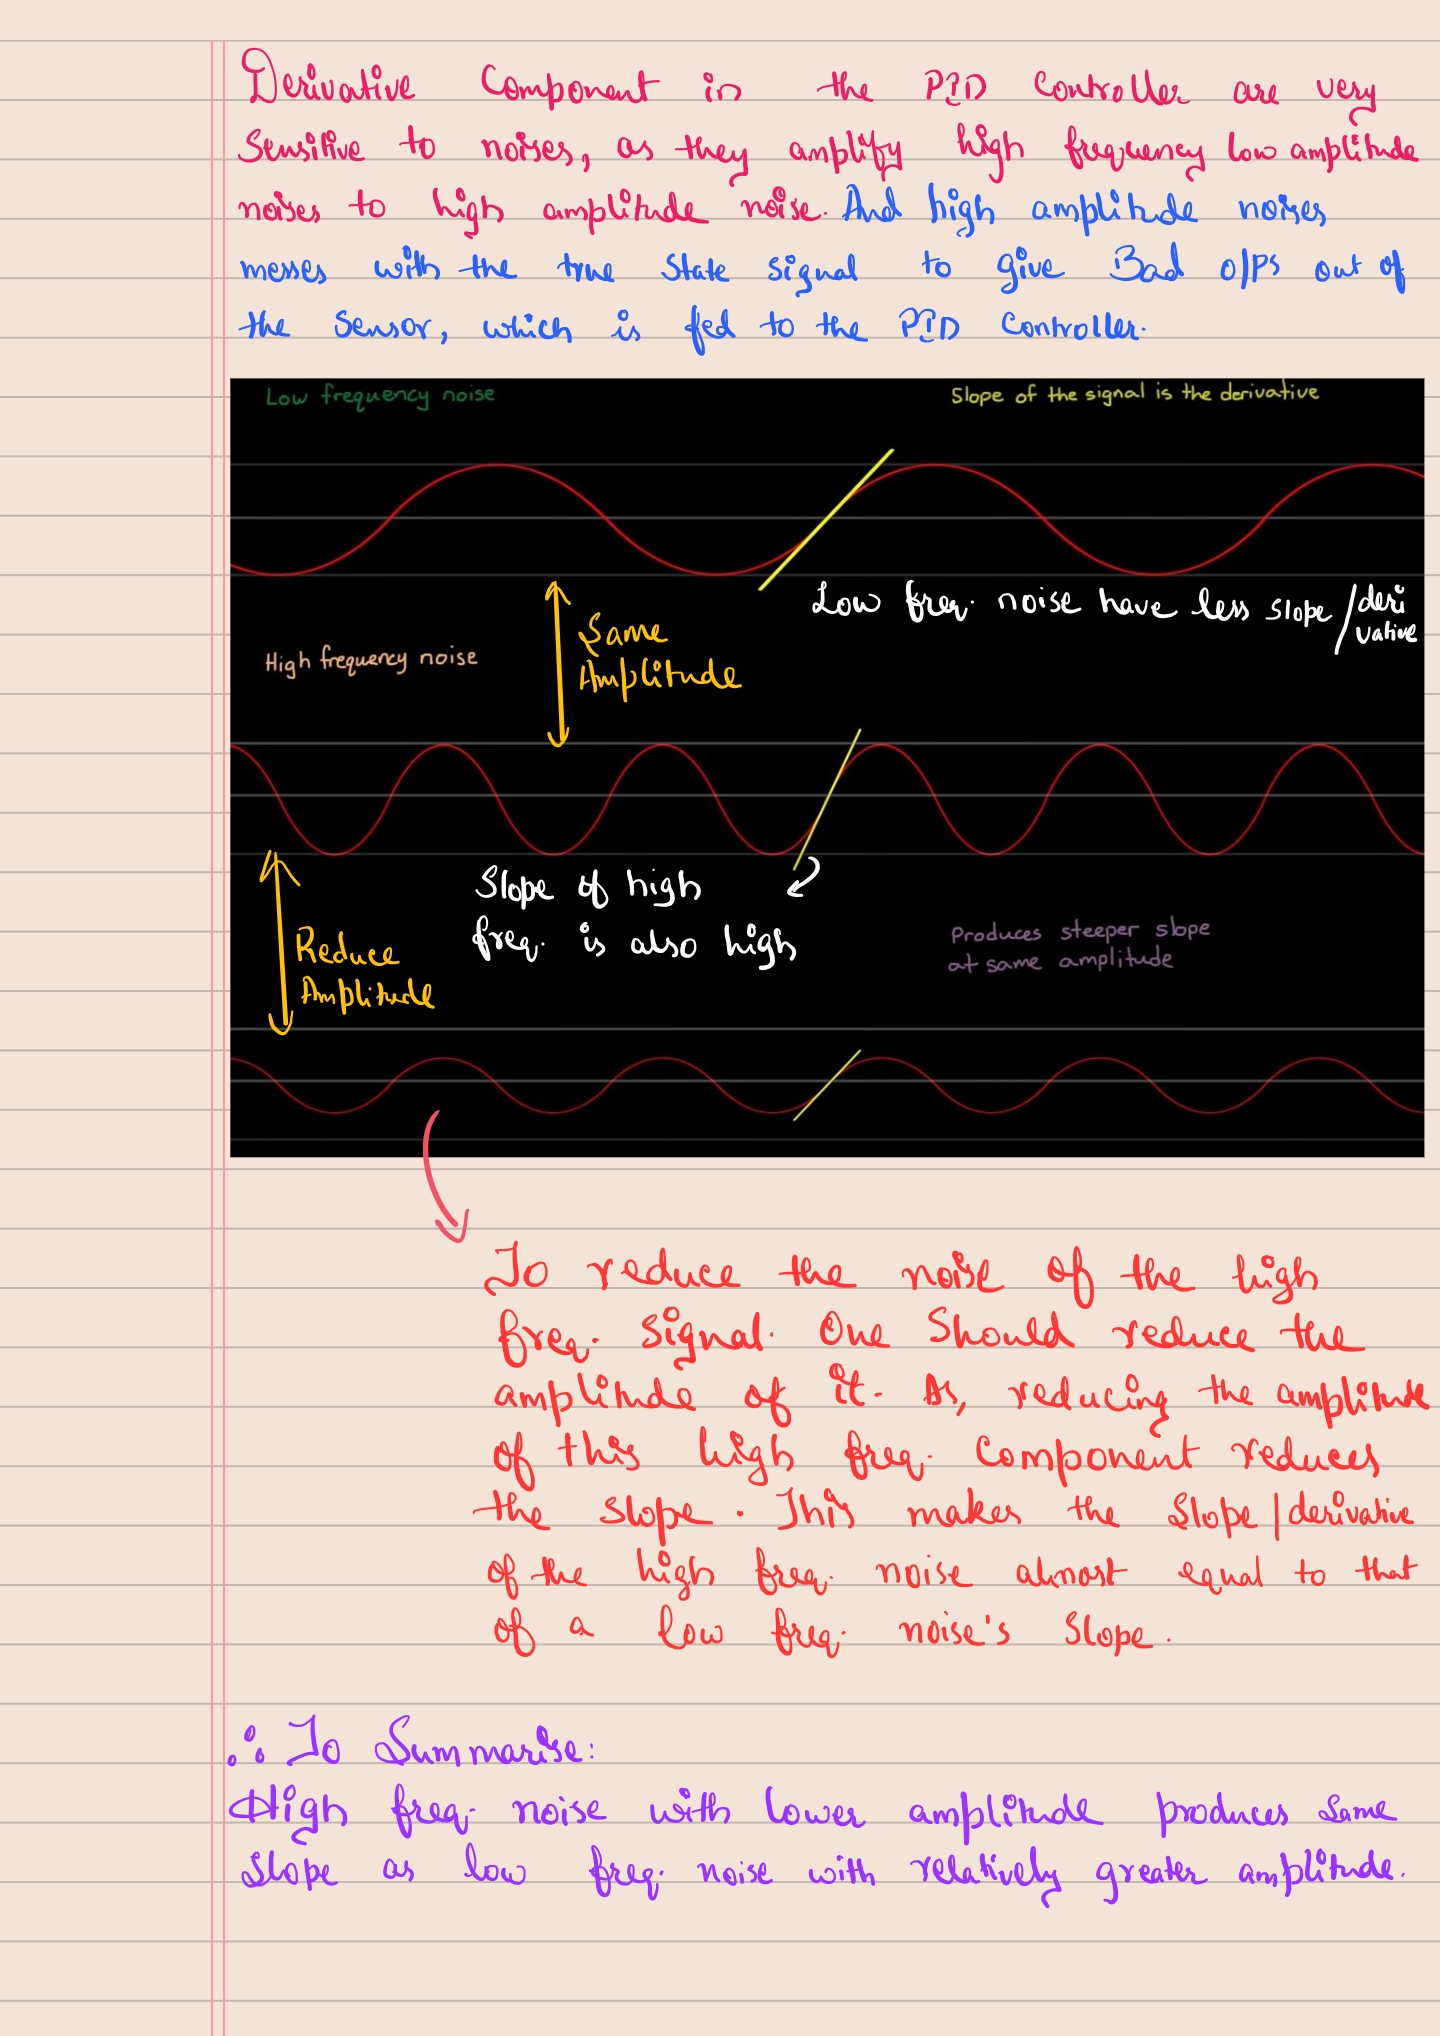 Derivative Component in the PID Controller are very
Sensitive to noises, as they amplify high frequency low amplitude
noises to high amplitude noise. And high amplitude noises
messes with the true State signal to give Bad o/ps out of
the Sensor, which is fed to the PID Controller.
Low frequency noise
Slope of the signal is the derivative
Low freq. noise have less slope/deri
vative
Same
Amplitude
High frequency noise
Slope of high
freq. is also high
Reduce
Amplitude
Produces steeper slope
at same amplitude
To reduce the noise of the high
freq. signal. One Should reduce the
amplitude of it. As, reducing the amplitude
of this high freq. Component reduces
the slope. This makes the Slope/derivative
of the high freq. noise almost equal to that
of a low freq. noise's Slope.
∴ To Summarise:
High freq. noise with lower amplitude produces same
slope as low freq. noise with relatively greater amplitude.